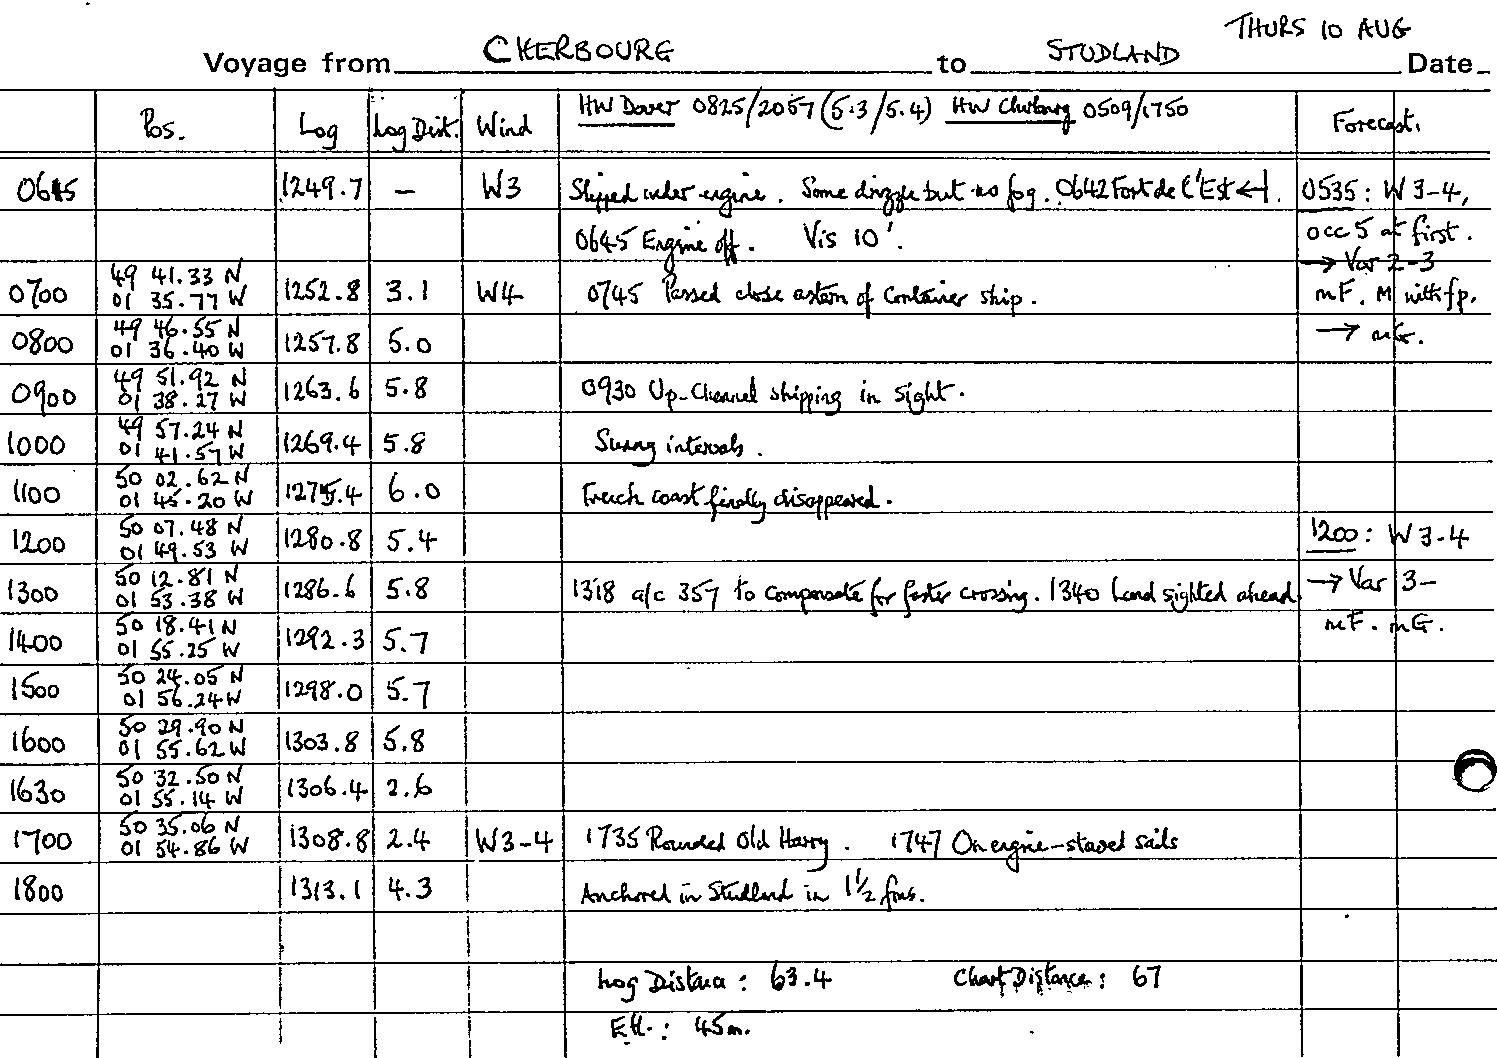 THURS 10 AUG
Voyage from CHERBOURG to STUDLAND Date
Pos. Log Log Dist. Wind HW Dover 0825/2057 (5.3/5.4) HW Cherbourg 0509/1750 Forecast.
0615 1249.7 – W3 Slipped under engine. Some drizzle but no fog. 0642 Fort de l'Est ←|. 0535: W 3-4,
0645 Engine off. Vis 10'. occ 5 at first.
→ Var 2-3
49 41.33 N
0700 01 35.77 W 1252.8 3.1 W4 0745 Passed close astern of Container ship. mF. M with fp.
49 46.55 N → mG.
0800 01 36.40 W 1257.8 5.0
49 51.92 N
0900 01 38.27 W 1263.6 5.8 0930 Up-Channel shipping in sight.
49 57.24 N
1000 01 41.57 W 1269.4 5.8 Sunny intervals.
50 02.62 N
1100 01 45.20 W 1275.4 6.0 French coast finally disappeared.
50 07.48 N
1200 01 49.53 W 1280.8 5.4 1200: W 3-4
50 12.81 N → Var 3-
1300 01 53.38 W 1286.6 5.8 1318 a/c 357 to compensate for faster crossing. 1340 Land sighted ahead
50 18.41 N mF. mG.
1400 01 55.25 W 1292.3 5.7
50 24.05 N
1500 01 56.24 W 1298.0 5.7
50 29.90 N
1600 01 55.62 W 1303.8 5.8
50 32.50 N
1630 01 55.14 W 1306.4 2.6
50 35.06 N
1700 01 54.86 W 1308.8 2.4 W3-4 1735 Rounded Old Harry. 1747 On engine-stowed sails
1800 1313.1 4.3 Anchored in Studland in 1½ fms.
Log Distance: 63.4 Chart Distance: 67
EH.: 45m.